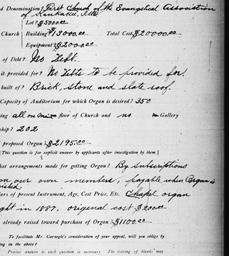 d Denomination? First Church of the Evangelical Association
of Kankakee, Ills.
Lot $5000.00
Church Building $13000.00 Total Cost $20000.00
Equipment $2000.00
of Debt? No Debt.
is provided for? No Debt to be provided for.
built of? Brick, stone and slate roof.
Capacity of Auditorium for which Organ is desired? 350
ing all on one floor of Church and no Gallery
ship? 202
proposed Organ? $2195.00
[This question is for explicit answer by applicants after investigation by them]
hat arrangements made for getting Organ? By subscriptions
our own members, payable when Organ is
lars of present Instrument, Age, Cost Price, Etc. Chapel organ
ght in 1887. original cost $200.00
already raised toward purchase of Organ? $1100.00
To facilitate Mr. Carnegie's consideration of your appeal, will you oblige by
ing in the above?
Precise answer to each question is necessary. The stating of